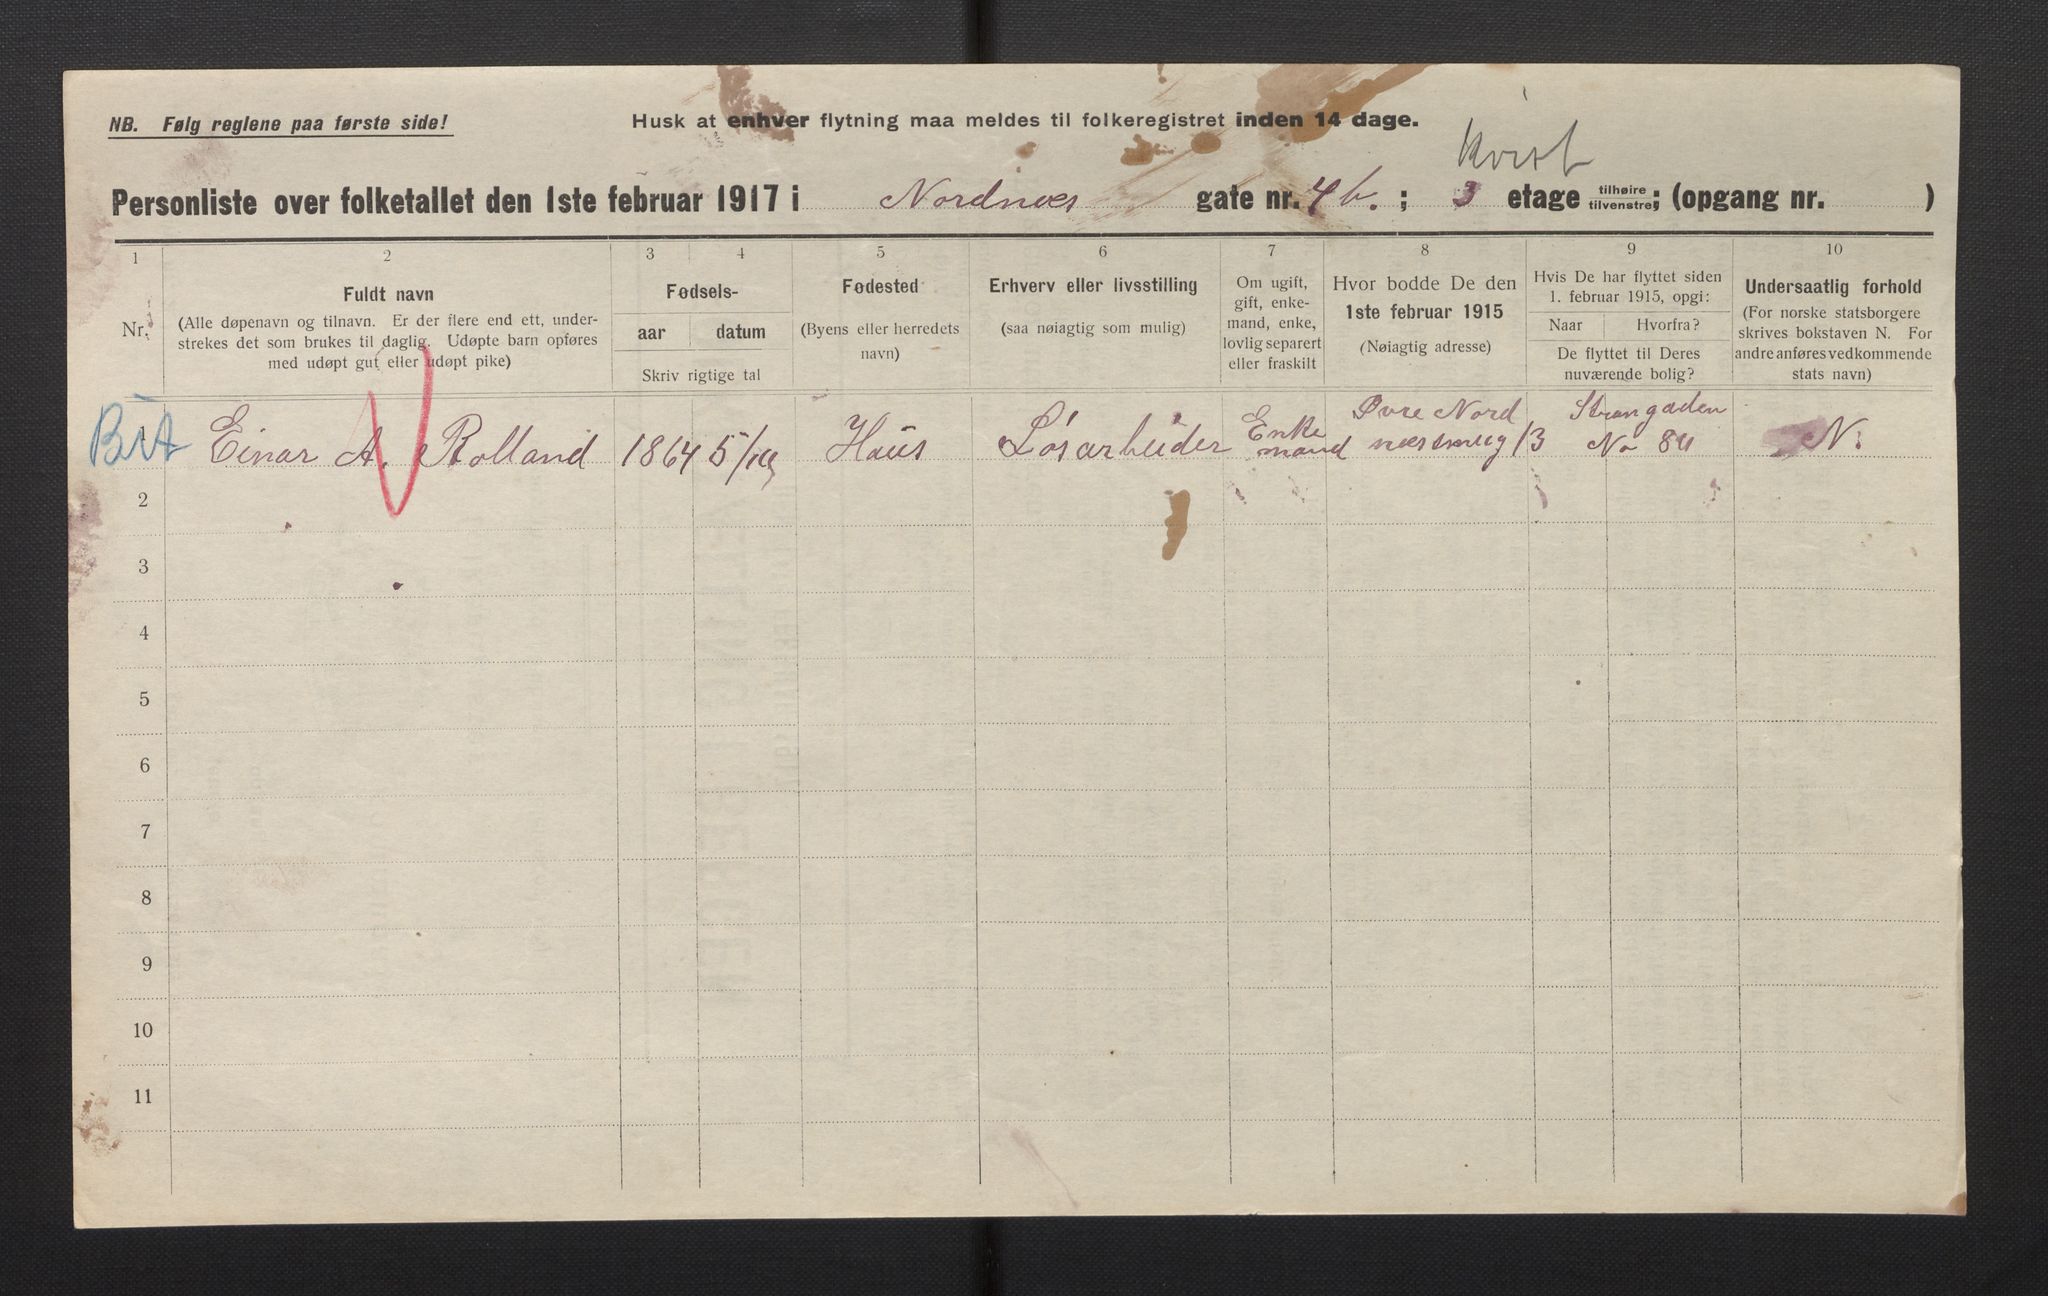 NB. Følg reglene paa første side!
Husk at enhver flytning maa meldes til folkeregistret inden 14 dage.
kvist
Personliste over folketallet den 1ste februar 1917 i Nordnæs gate nr. 4 b. ; 3 etage tilhøire tilvenstre; (opgang nr. )
1 2 3 4 5 6 7 8 9 10
Nr.
Fuldt navn
(Alle døpenavn og tilnavn. Er der flere end ett, under-
strekes det som brukes til daglig. Udøpte barn opføres
med udøpt gut eller udøpt pike)
Fødsels-
aar datum
Skriv rigtige tal
Fødested
(Byens eller herredets
navn)
Erhverv eller livsstilling
(saa nøiagtig som mulig)
Om ugift,
gift, enke-
mand, enke,
lovlig separert
eller fraskilt
Hvor bodde De den
1ste februar 1915
(Nøiagtig adresse)
Hvis De har flyttet siden
1. februar 1915, opgi:
Naar Hvorfra?
De flyttet til Deres
nuværende bolig?
Undersaatlig forhold
(For norske statsborgere
skrives bokstaven N. For
andre anføres vedkommende
stats navn)
1 Einar A. Rolland 1864 Haus Løsarbeider Enke
mand
Øvre Nord
næssmug 13
Strangaden
No 84
N.
2
3
4
5
6
7
8
9
10
11